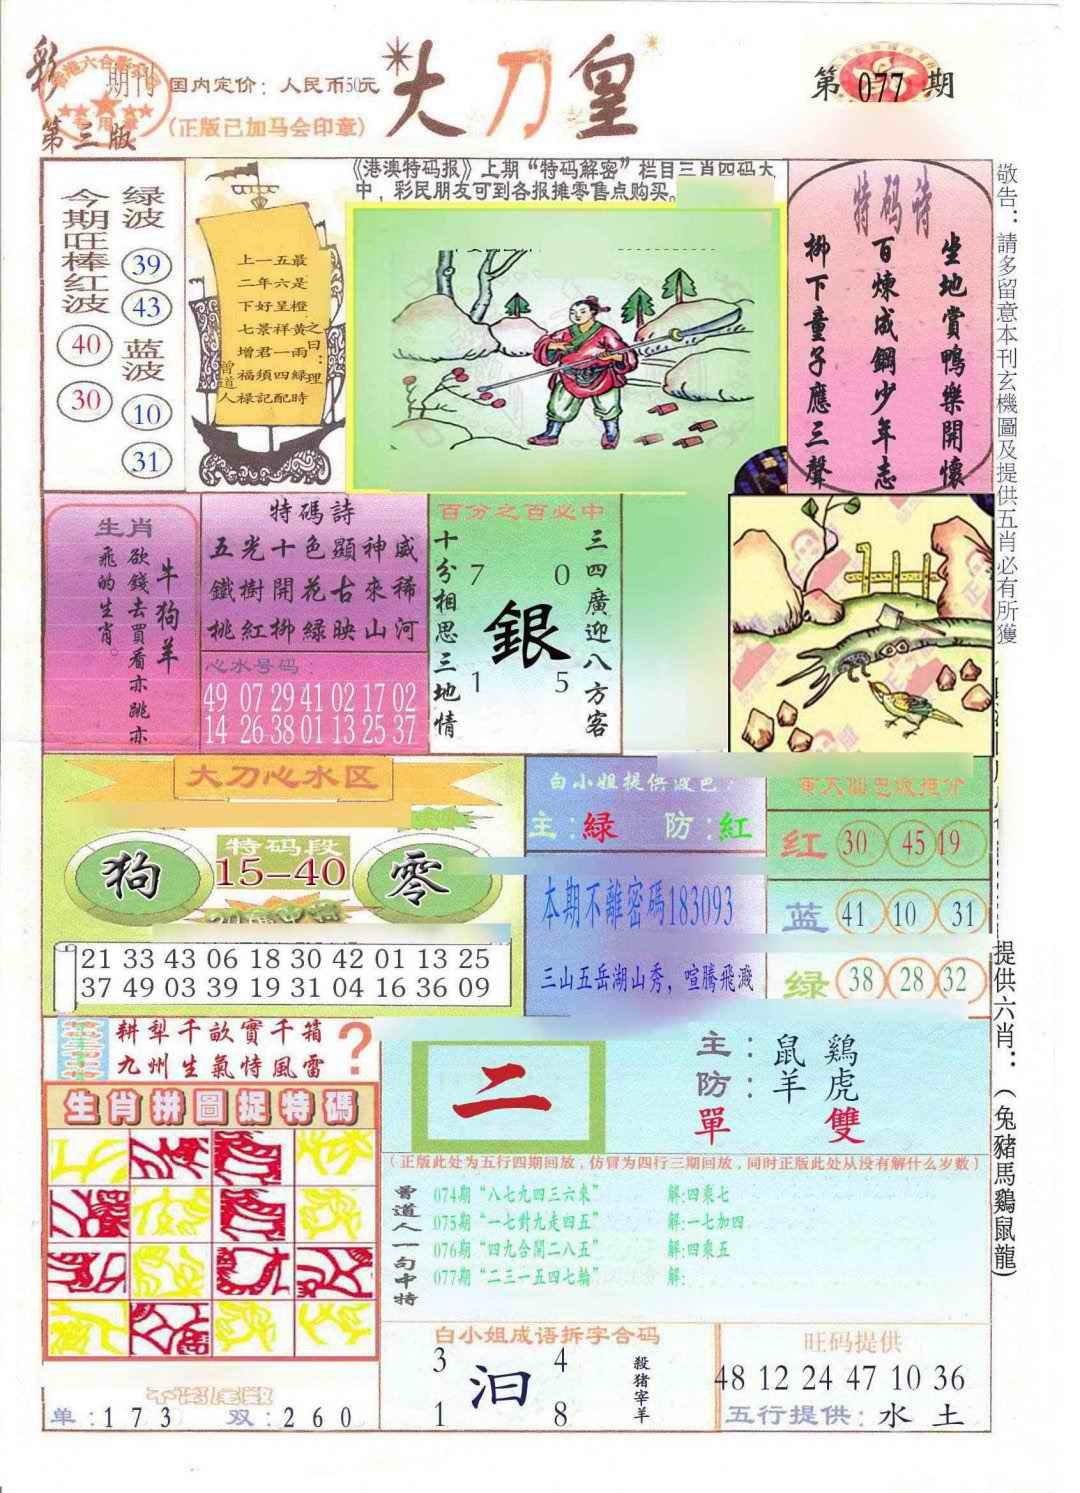 彩
期刊
第三版
国内定价：人民币50元
(正版已加马会印章)
大刀皇
第 077 期
今期旺棒红波
40
30
绿波
39
43
蓝波
10
31
上一五最
二年六是
下好呈橙
七景祥黄
增君一雨
福頻四緑
禄記配時
之曰：理
曾道人
《港澳特码报》上期“特码解密”栏目三肖四码大
中，彩民朋友可到各报摊零售点购买。
特码诗
坐地賞鴨樂開懷
百煉成鋼少年志
柳下童子應三聲
敬告：請多留意本刊玄機圖及提供五肖必有所獲
生肖
牛狗羊
欲錢去買看亦跳亦
飛的生肖。
特碼詩
五光十色顯神威
鐵樹開花古來稀
桃紅柳綠映山河
心水号码：
49 07 29 41 02 17 02
14 26 38 01 13 25 37
百分之百必中
三四廣迎八方客
十分相思三地情
7 0
銀
1 5
大刀心水区
特码段
狗 15-40 零
21 33 43 06 18 30 42 01 13 25
37 49 03 39 19 31 04 16 36 09
白小姐提供波色：
主：緑 防：紅
本期不離密碼183093
三山五岳湖山秀，喧騰飛濺
红 30 45 19
蓝 41 10 31
绿 38 28 32
提供六肖：（兔豬馬鷄鼠龍）
耕犁千畝實千箱
九州生氣恃風雷
?
生肖拼圖捉特碼
二
主：鼠鷄
防：羊虎
單 雙
(正版此处为五行四期回放，仿冒为四行三期回放，同时正版此处从没有解什么岁数)
曾道人一句中特
074期“八七九四三六來” 解:四乘七
075期“一七對九走四五” 解:一七加四
076期“四九合開二八五” 解:四乘五
077期“二三一五四七輪” 解:
白小姐成语拆字合码
3 4
汩
1 8
殺猪宰羊
旺码提供
48 12 24 47 10 36
五行提供：水 土
单：1 7 3 双：2 6 0